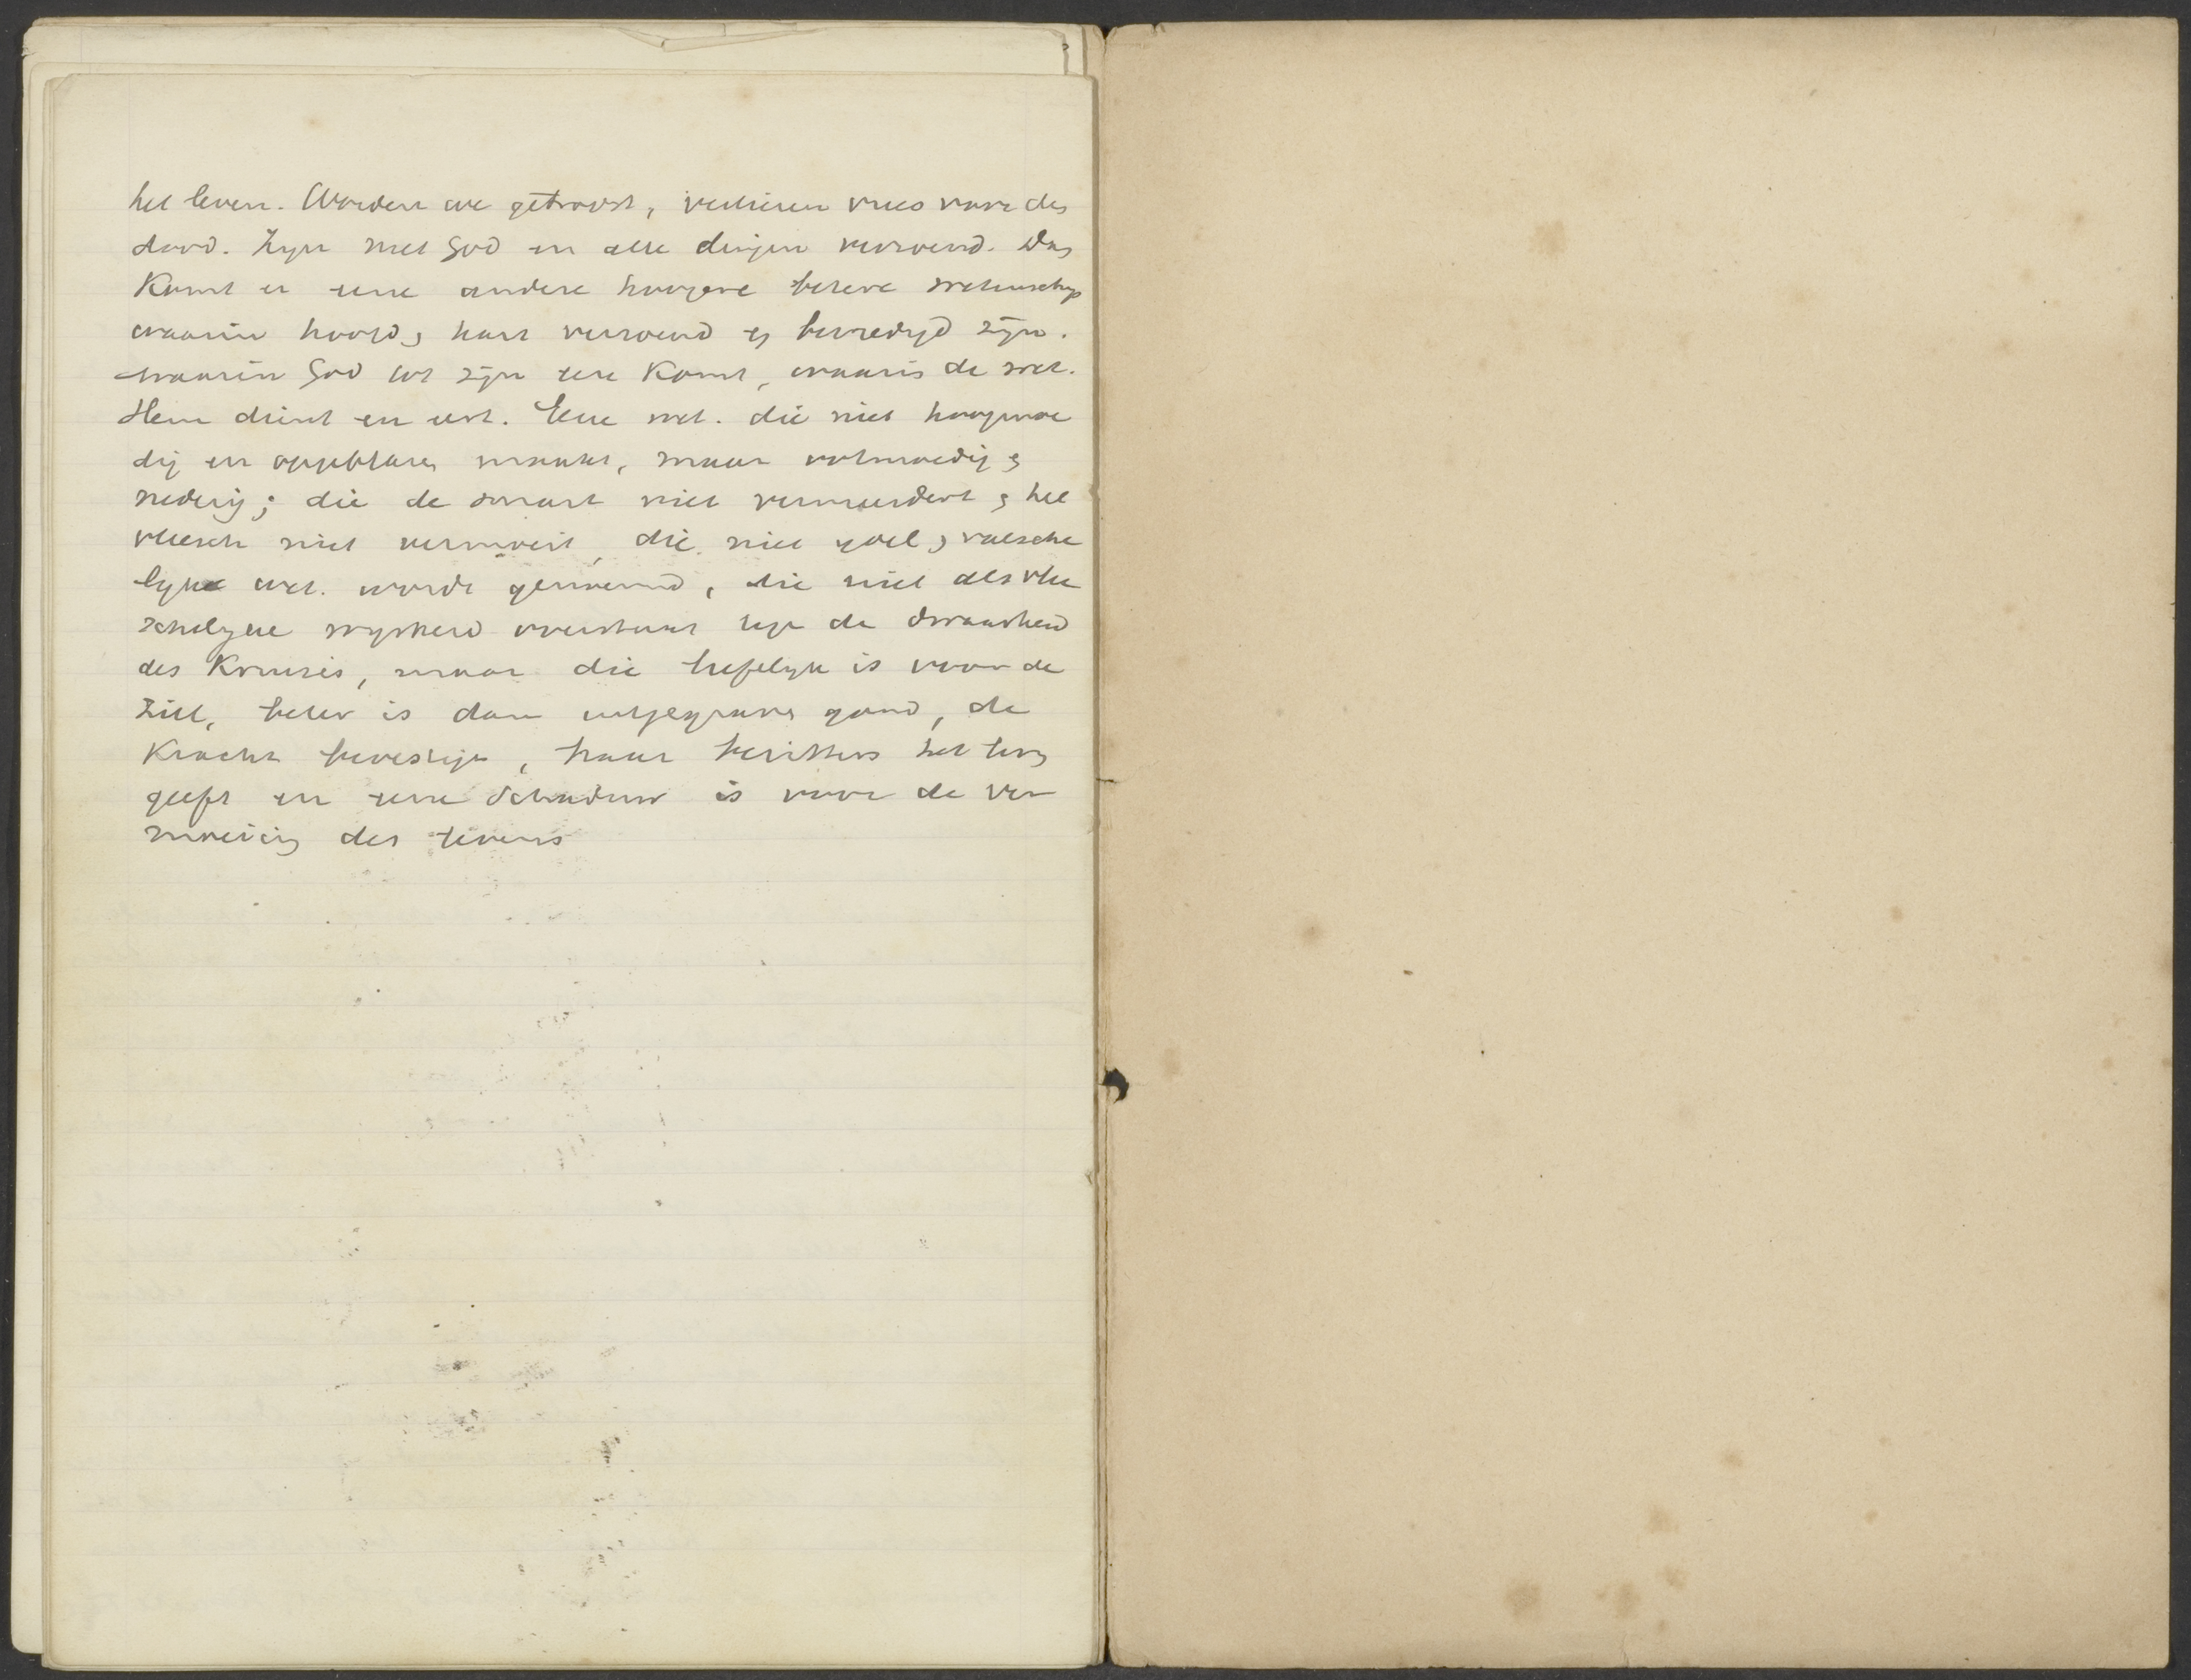 het leven. Worden we getroost, verliezen vrees voor den
dood. Zijn met God en alle dingen verzoend. Dan
Komt er eene andere hoogere betere wetenschap
waarin hoofd en hart verzoend en bevredigd zijn.
waarin God tot zijn eere Komt, waarin de wet.
Hem dient en eert. Eene wet. die niet hoogmoe
dig en opgeblazen maakt, maar ootmoedig en
nederig; die de smart niet vermeerdert en het
vleesch niet vermoeit, die niet ijdel en valsche
lijke wet. wordt genoemd, die niet als vlee
schelijke wijsheid overstaat tegen de dwaasheid
des Kruises, maar die liefelijk is voor de
Ziel, beter is dan uitgegraven goud, de
Kracht bevestigt, haar bezitters het leven
geeft en eene Schaduw is voor de ver
moeiing des levens